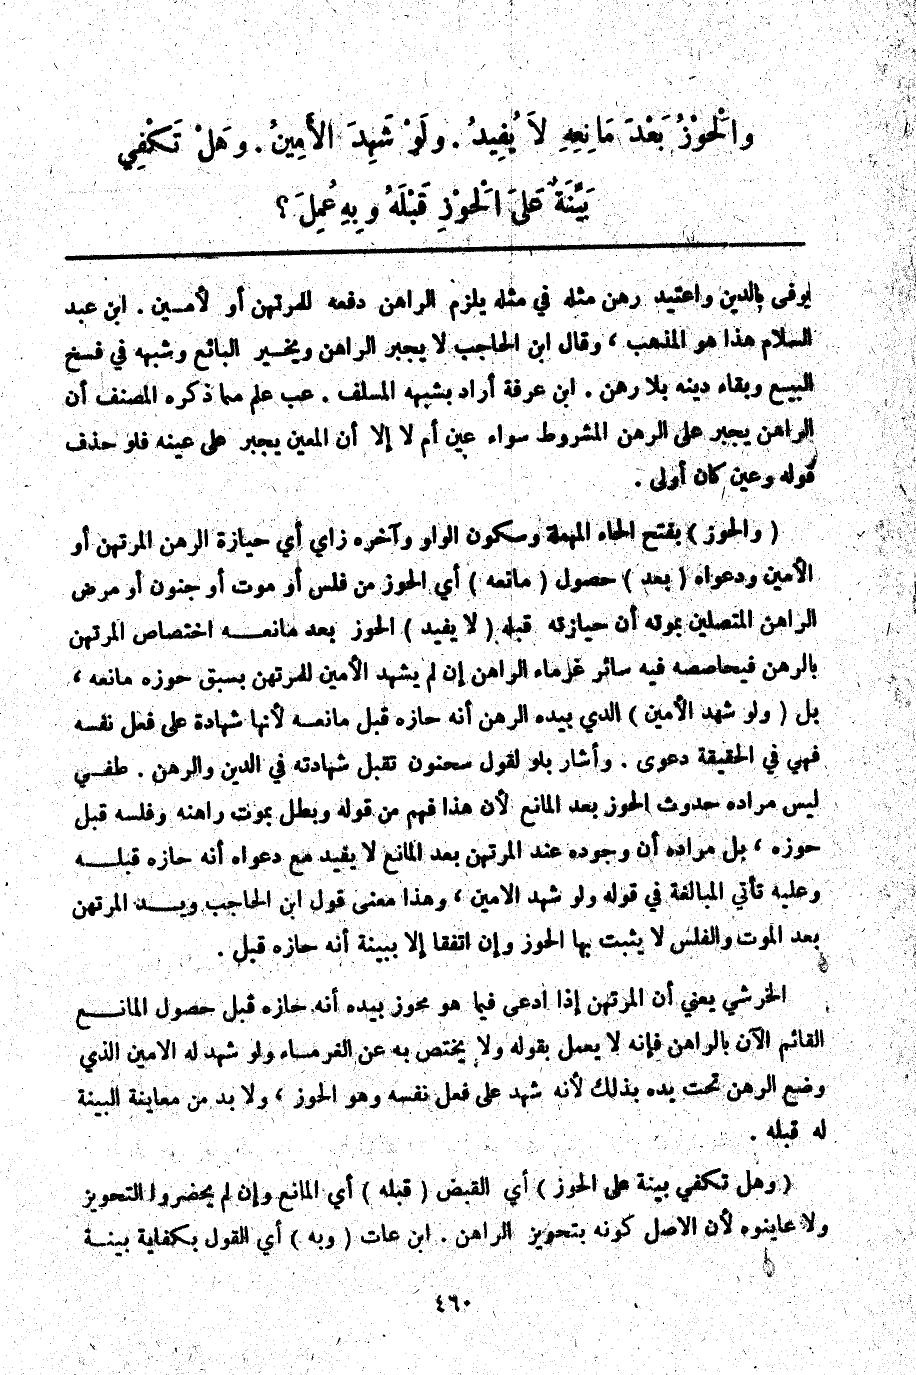 والْحَوْزُ بَعْدَ مَانِعِهِ لاَ يُفِيدُ . ولَوْ شَهِدَ الأَمِينُ . وهَلْ تَكْفِي
بَيِّنَةٌ عَلَى الْحَوْزِ قَبْلَهُ وبِهِ عُمِلَ ؟
يوفى بالدين واعتيد رهن مثله في مثله يلزم الراهن دفعه للمرتهن أو لأمــين . ابن عبد
السلام هذا هو المذهب ، وقال ابن الحاجب لا يجبر الراهن ويخــير البائع وشبهه في فسخ
البيـع وبقاء دينه بلا رهن . ابن عرفة أراد بشبهه المسلف . عب علم مما ذكره المصنف أن
الراهن يجبر على الرهن المشروط سواء عين أم لا إلا أن المعين يجبر على عينه فلو حذف
قوله وعين كان أولى .
( والحوز ) بفتح الحاء المهملة وسكون الواو وآخره زاي أي حيازة الرهن المرتهن أو
الأمين ودعواه ( بعد ) حصول ( مانعه ) أي الحوز من فلس أو موت أو جنون أو مرض
الراهن المتصلين بموته أن حيازته قبله ( لا يفيد ) الحوز بعد مانعــه اختصاص المرتهن
بالرهن فيحاصصه فيه سائر غرماء الراهن إن لم يشهد الأمين للمرتهن بسبق حوزه مانعه ،
بل ( ولو شهد الأمين ) الذي بيده الرهن أنه حازه قبل مانعــه لأنها شهادة على فعل نفسه
فهي في الحقيقة دعوى . وأشار بلو لقول سحنون تقبل شهادته في الدين والرهن . طفــي
ليس مراده حدوث الحوز بعد المانع لأن هذا فهم من قوله وبطل بموت راهنه وفلسه قبل
حوزه ، بل مراده أن وجوده عند المرتهن بعد المانع لا يفيد مع دعواه أنه حازه قبلــــه
وعليه تأتي المبالغة في قوله ولو شهد الامين ، وهذا معنى قول ابن الحاجب ويــــد المرتهن
بعد الموت والفلس لا يثبت بها الحوز وإن اتفقا إلا ببينة أنه حازه قبل .
الخرشي يعني أن المرتهن إذا ادعى فيما هو محوز بيده أنه حازه قبل حصول المانــــع
القائم الآن بالراهن فإنه لا يعمل بقوله ولا يختص به عن الغرمــاء ولو شهد له الامين الذي
وضع الرهن تحت يده بذلك لأنه شهد على فعل نفسه وهو الحوز ، ولا بد من معاينة البينة
له قبله .
( وهل تكفي بينة على الحوز ) أي القبض ( قبله ) أي المانع وإن لم يحضروا التحويز
ولا عاينوه لأن الاصل كونه بتحويز الراهن . ابن عات ( وبه ) أي القول بكفاية بينــة
٤٦٠